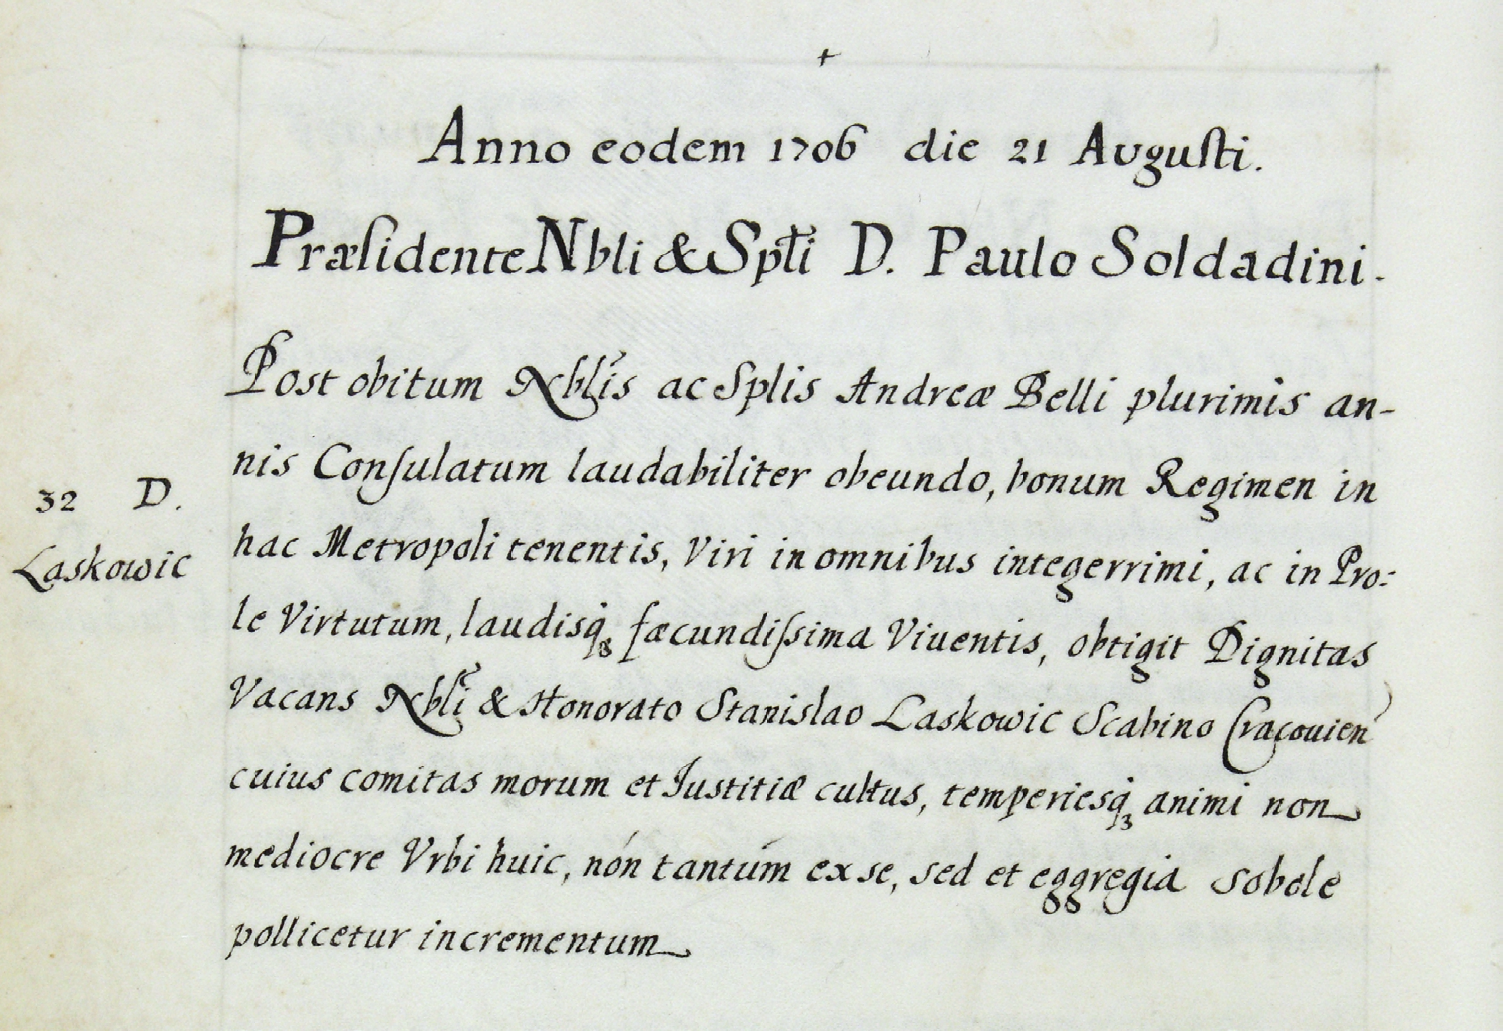 Anno eodem 1706 die 21 Augusti.
Præsidente Nbli & Sptli D. Paulo Soldadini.
Post obitum Nblis ac Splis Andreæ Belli plurimis an-
nis Consulatum laudabiliter obeundo, bonum Regimen in
32 D.
hac Metropoli tenentis, Viri in omnibus integerrimi, ac in Pro:
Laskowic
le Virtutum, laudisq3 fæcundissima Viuentis, obtigit Dignitas
Vacans Nbli & Honorato Stanislao Laskowic Scabino Cracouien
cuius comitas morum et Iustitiæ cultus, temperiesq3 animi non
mediocre Vrbi huic, nón tantúm ex se, sed et eggregia sobole
pollicetur incrementum